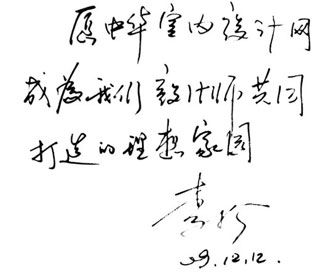 愿中华室内设计网
成为我们设计师共同
打造的理想家园
09.12.12.